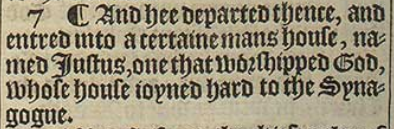 7 ¶ And hee departed thence, and
entred into a certaine mans house, na-
med Justus, one that worshipped God,
whose house ioyned hard to the Syna-
gogue.